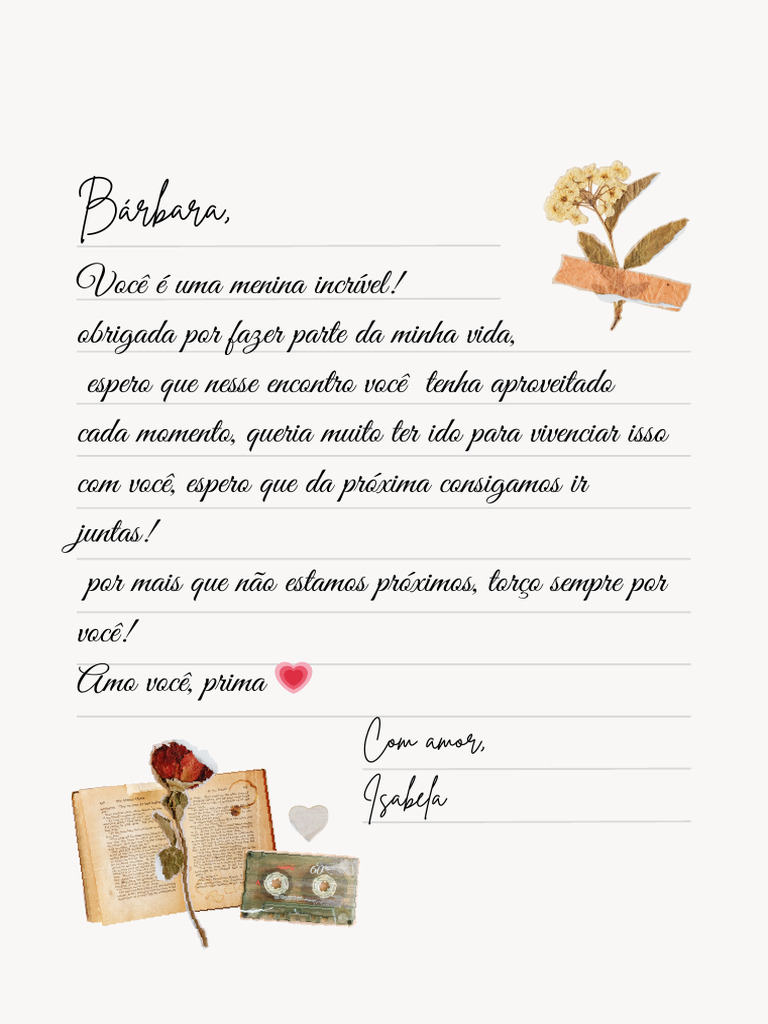 Bárbara,
Você é uma menina incrível!
obrigada por fazer parte da minha vida,
espero que nesse encontro você tenha aproveitado
cada momento, queria muito ter ido para vivenciar isso
com você, espero que da próxima consigamos ir
juntas!
por mais que não estamos próximos, torço sempre por
você!
Amo você, prima 💗
Com amor,
Isabela
60